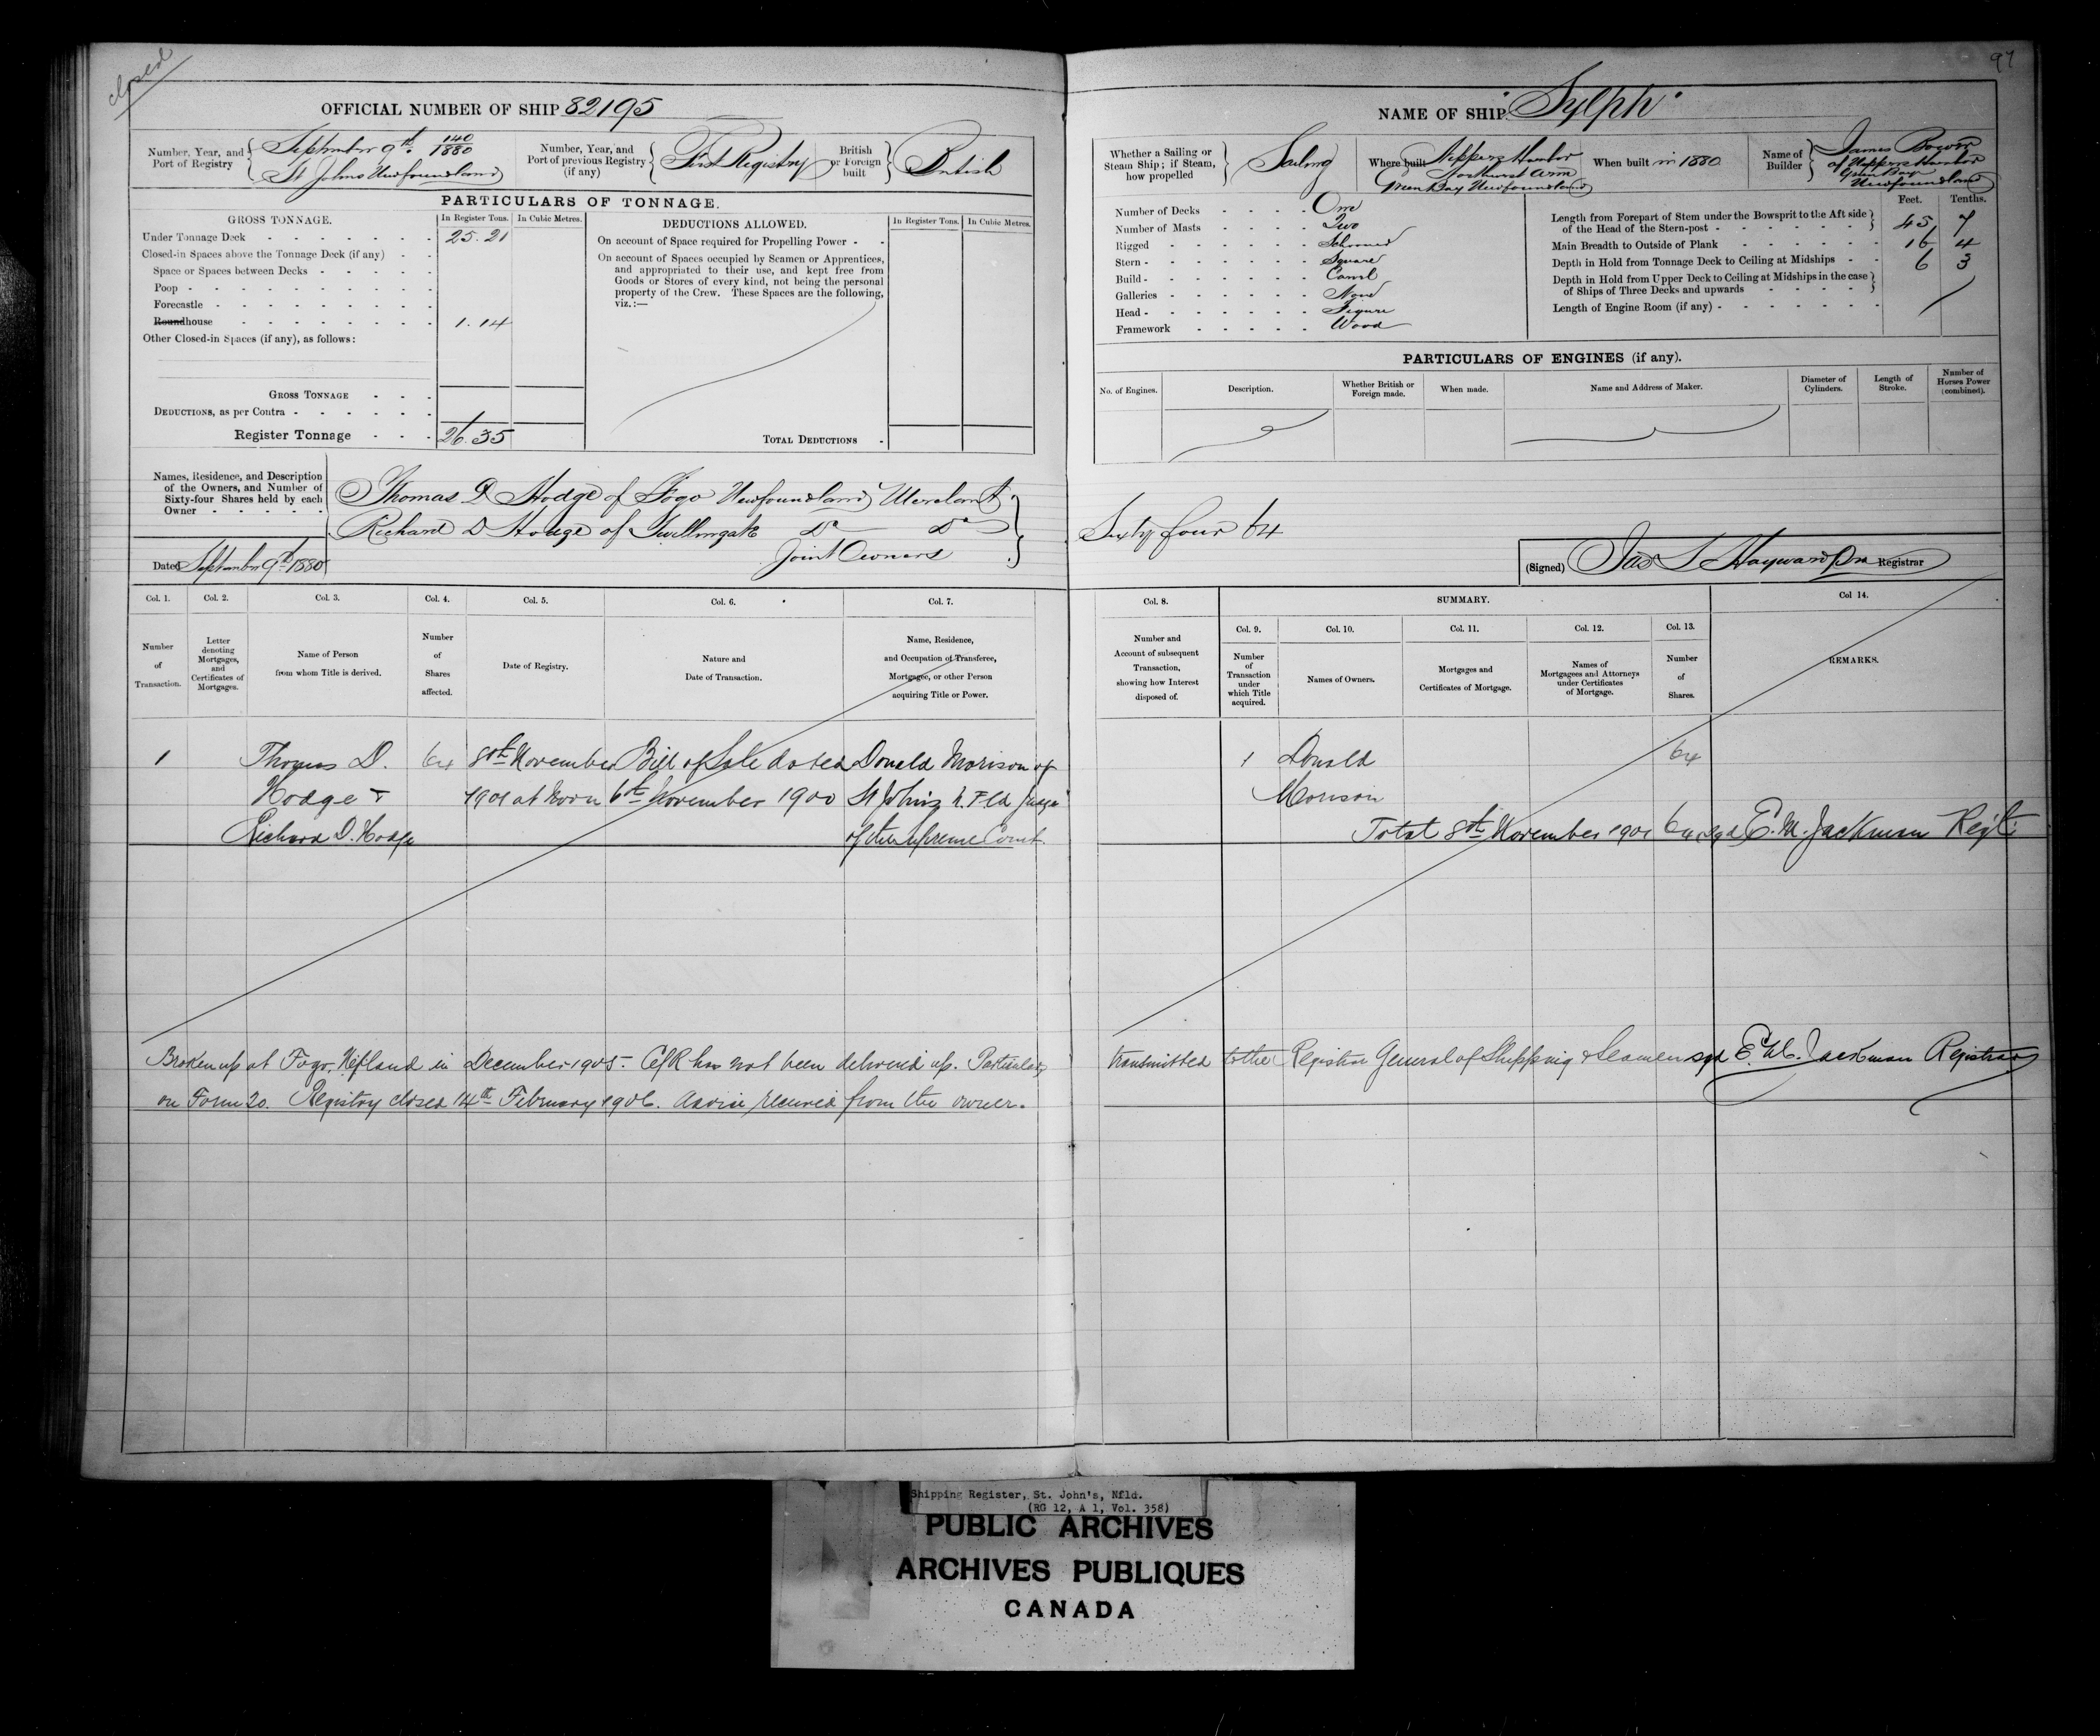 closed
97
OFFICIAL NUMBER OF SHIP 82195
NAME OF SHIP "Sylph"
Number, Year, and Port of Registry
September 9th 140/1880
St Johns Newfoundland
Number, Year, and Port of previous Registry (if any)
First Registry
British or Foreign built
British
Whether a Sailing or Steam Ship; if Steam, how propelled
Sailing
Where built
Nippers Harbor
Northwest Arm
Green Bay Newfoundland
When built in 1880
Name of Builder
James Bowen
of Nippers Harbor
Green Bay
Newfoundland
PARTICULARS OF TONNAGE.
GROSS TONNAGE.
In Register Tons. In Cubic Metres.
Under Tonnage Deck 25.21
Closed-in Spaces above the Tonnage Deck (if any)
Space or Spaces between Decks
Poop
Forecastle
Roundhouse 1.14
Other Closed-in Spaces (if any), as follows:
GROSS TONNAGE
DEDUCTIONS, as per Contra
Register Tonnage 26.35
DEDUCTIONS ALLOWED.
In Register Tons. In Cubic Metres.
On account of Space required for Propelling Power
On account of Spaces occupied by Seamen or Apprentices,
and appropriated to their use, and kept free from
Goods or Stores of every kind, not being the personal
property of the Crew. These Spaces are the following,
viz.:—
TOTAL DEDUCTIONS
Number of Decks One
Number of Masts Two
Rigged Schooner
Stern Square
Build Carvel
Galleries None
Head Figure
Framework Wood
Feet. Tenths.
Length from Forepart of Stem under the Bowsprit to the Aft side
of the Head of the Stern-post 45 7
Main Breadth to Outside of Plank 16 4
Depth in Hold from Tonnage Deck to Ceiling at Midships 6 3
Depth in Hold from Upper Deck to Ceiling at Midships in the case
of Ships of Three Decks and upwards
Length of Engine Room (if any)
PARTICULARS OF ENGINES (if any).
No. of Engines.
Description.
Whether British or Foreign made.
When made.
Name and Address of Maker.
Diameter of Cylinders.
Length of Stroke.
Number of Horses Power (combined).
Names, Residence, and Description
of the Owners, and Number of
Sixty-four Shares held by each
Owner
Thomas D Hodge of Fogo Newfoundland Merchant
Richard D Hodge of Twillingate Do Do
Joint Owners
Sixty four 64
Dated September 9th 1880
(Signed) Jas S Hayward Registrar
Col. 1. Col. 2. Col. 3. Col. 4. Col. 5. Col. 6. Col. 7.
Number of Transaction.
Letter denoting Mortgages, and Certificates of Mortgages.
Name of Person from whom Title is derived.
Number of Shares affected.
Date of Registry.
Nature and Date of Transaction.
Name, Residence, and Occupation of Transferee, Mortgagee, or other Person acquiring Title or Power.
Col. 8. SUMMARY. Col 14.
Col. 9. Col. 10. Col. 11. Col. 12. Col. 13.
Number and Account of subsequent Transaction, showing how Interest disposed of.
Number of Transaction under which Title acquired.
Names of Owners.
Mortgages and Certificates of Mortgage.
Names of Mortgagees and Attorneys under Certificates of Mortgage.
Number of Shares.
REMARKS.
1 Thomas D. 64 8th November Bill of Sale dated Donald Morison of
Hodge & 1901 at Noon 6th November 1900 St Johns N.Fld Judge
Richard D. Hodge of the Supreme Court.
1 Donald 64
Morison
Total 8th November 1901 64 sgd E. M. Jackman Regt.
Broken up at Fogo, Nfland in December 1905. C of R has not been delivered up. Particulars
transmitted to the Registrar General of Shipping & Seamen sgd E. M. Jackman Registrar
on Form 20. Registry closed 14th February 1906. Advice received from the owner.
Shipping Register, St. John's, Nfld.
(RG 12, A 1, Vol. 358)
PUBLIC ARCHIVES
ARCHIVES PUBLIQUES
CANADA